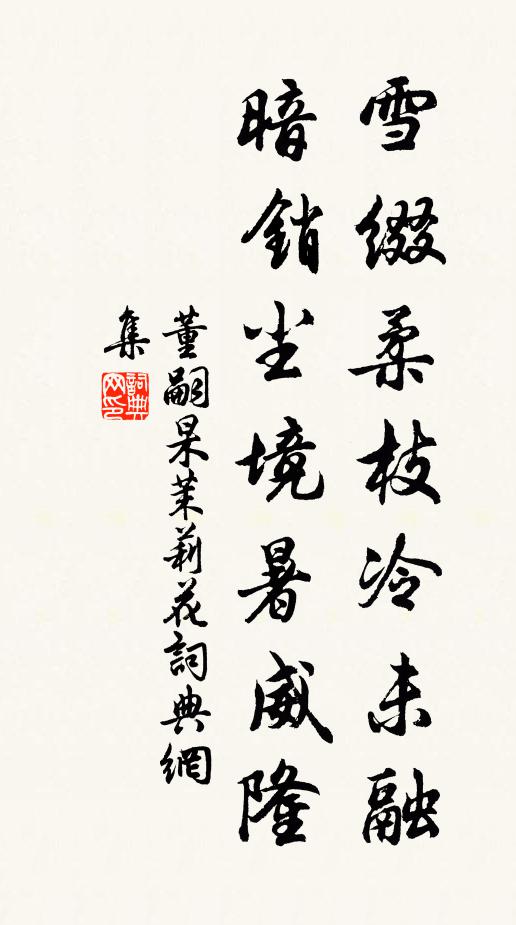 雪綴柔枝冷未融
暗銷尘境暑威隆
董嗣杲茉莉花詞典網
集
詞典网印